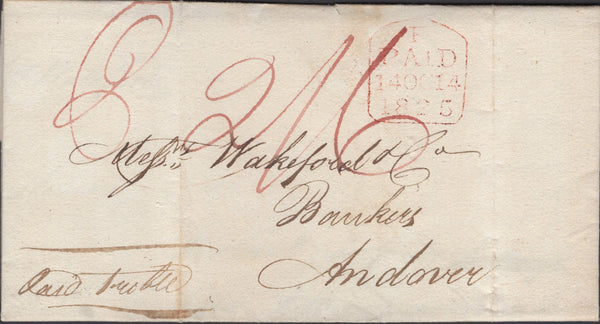 P
PAID
14 OC 14
1825
2/6
Messrs Wakeford & Co
Bankers
Andover
Paid Treble